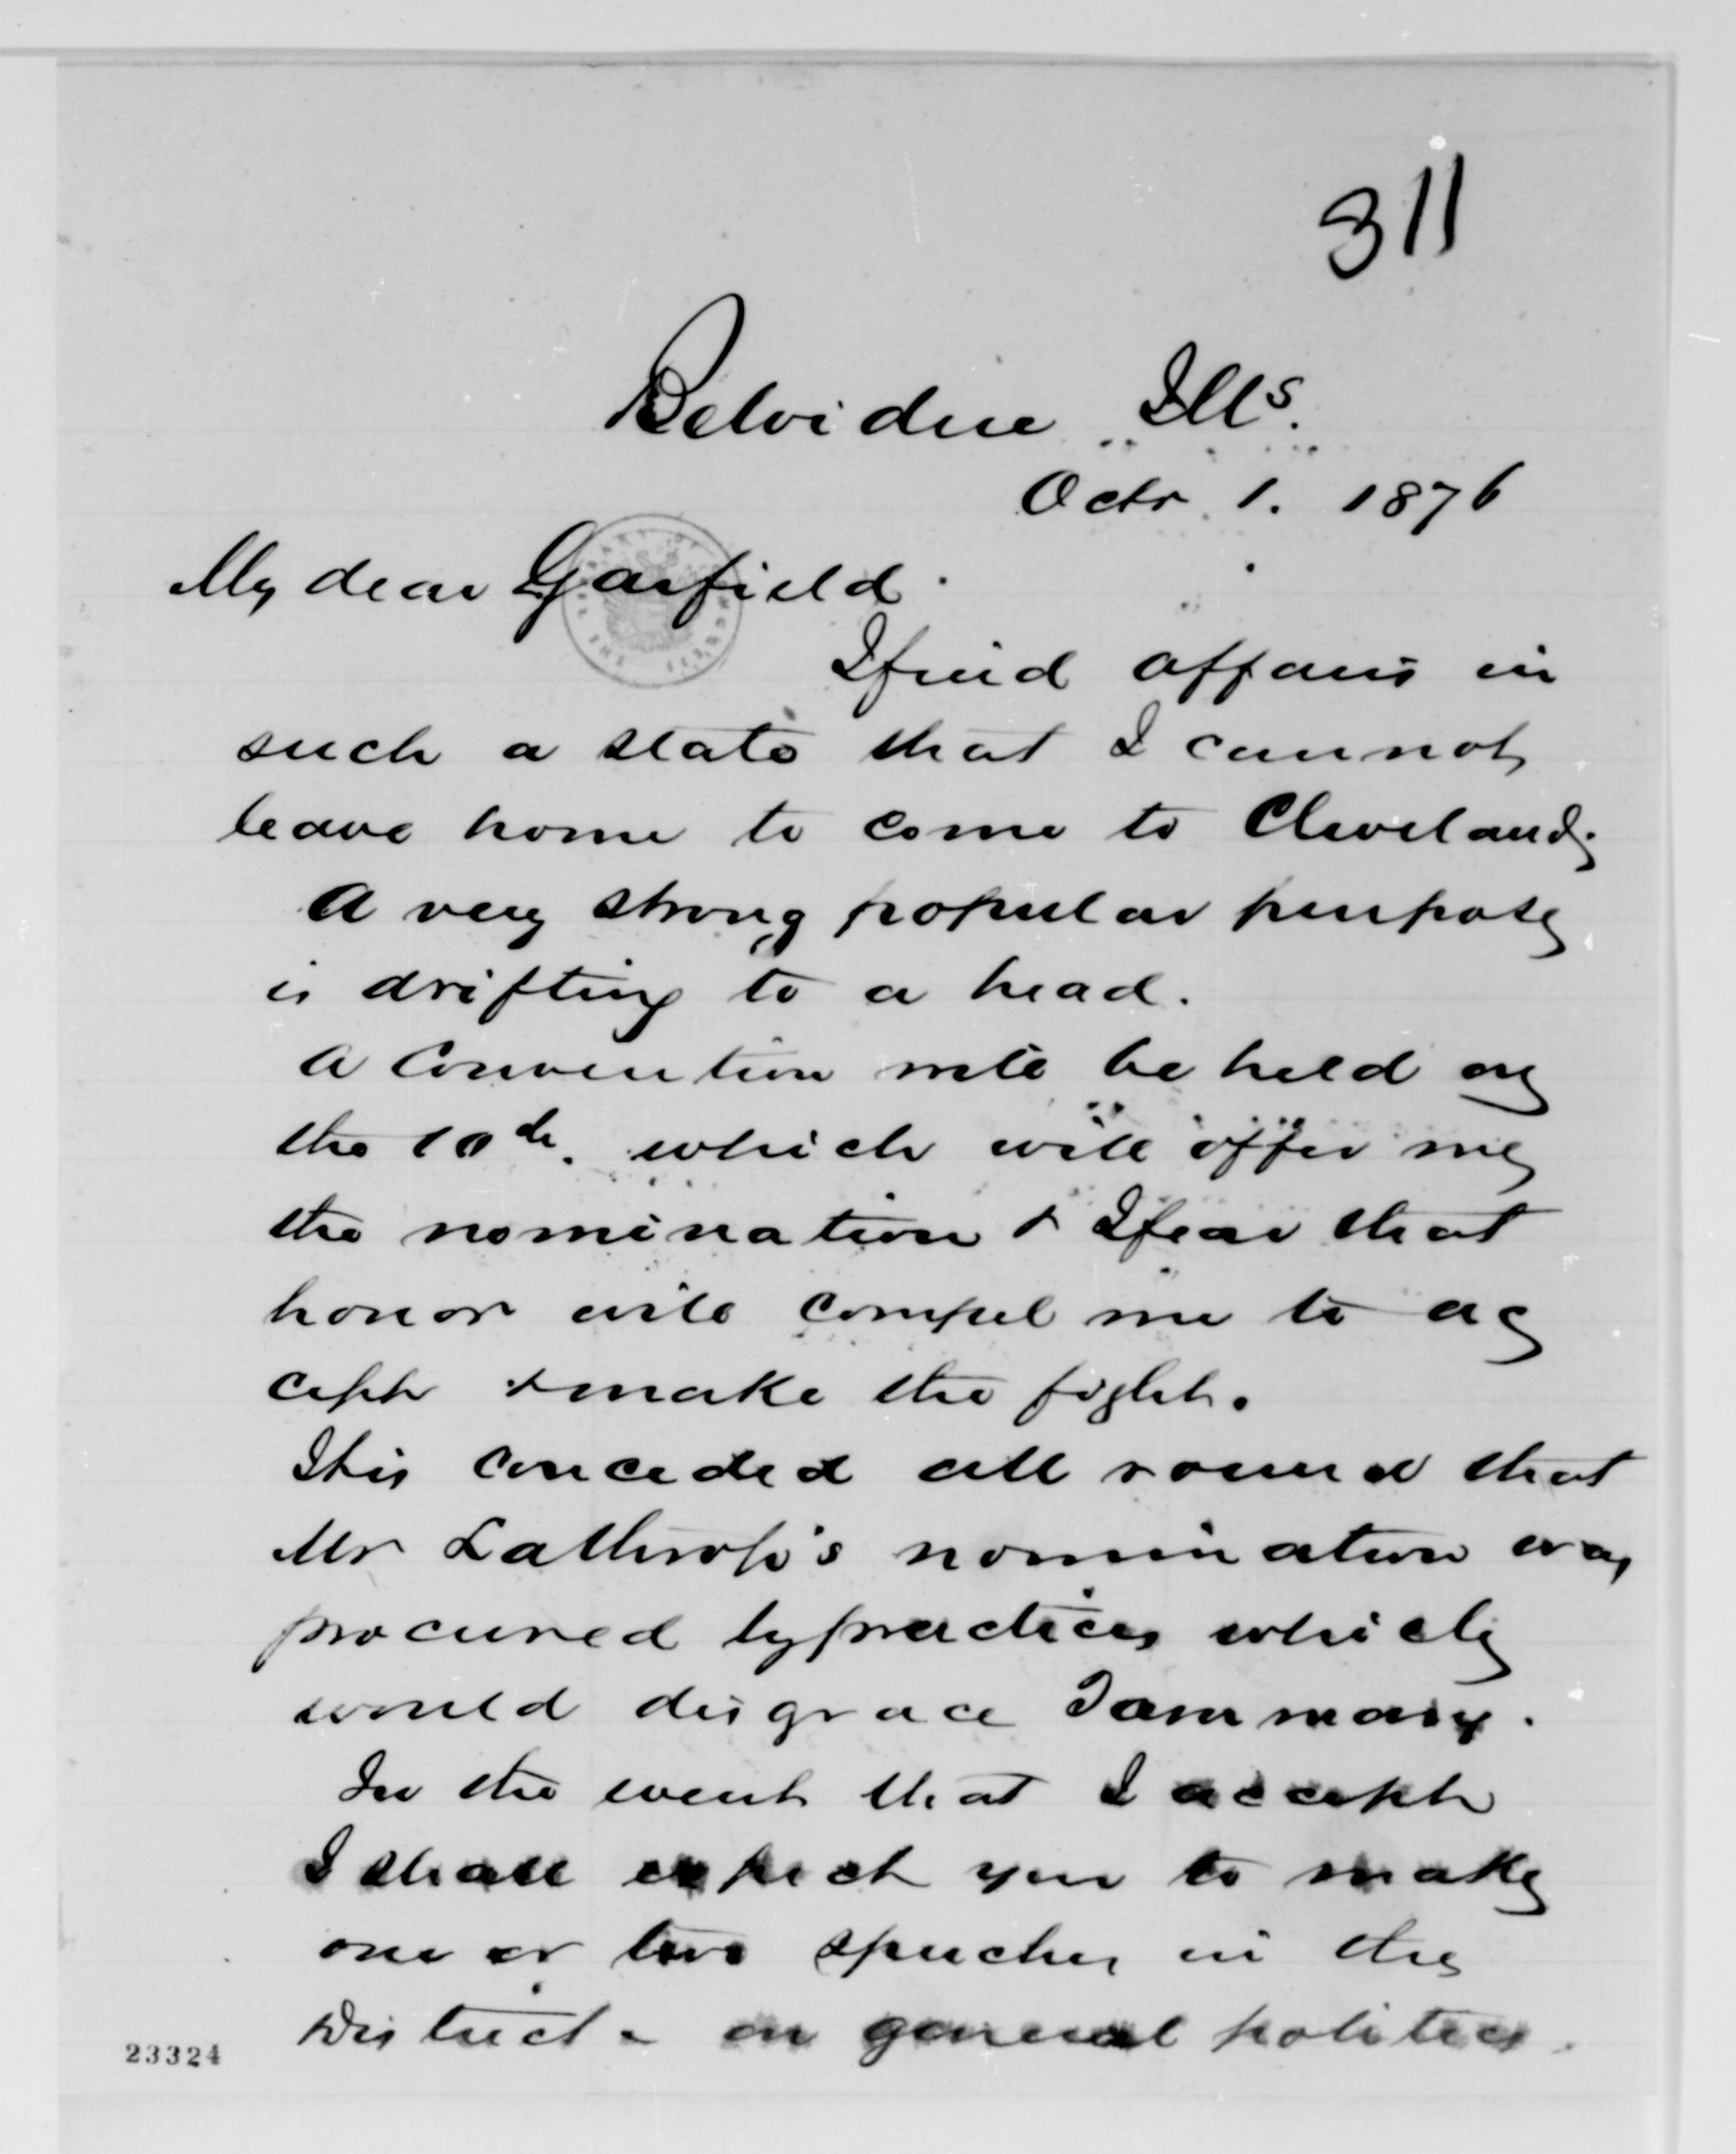 311
Belvidere Ills.
Octr 1. 1876
My dear Garfield.
I find affairs in
such a state that I cannot
leave home to come to Cleveland;
A very strong popular purpose
is drifting to a head.
A Convention will be held on
the 10th. which will offer me
the nomination & I fear that
honor will compel me to ac
cept & make the fight.
It is conceded all round that
Mr Lathrop's nomination was
procured by practices which
would disgrace Tammany.
In the event that I accept
I shall expect you to make
one or two speeches in the
District - on general politics.
23324